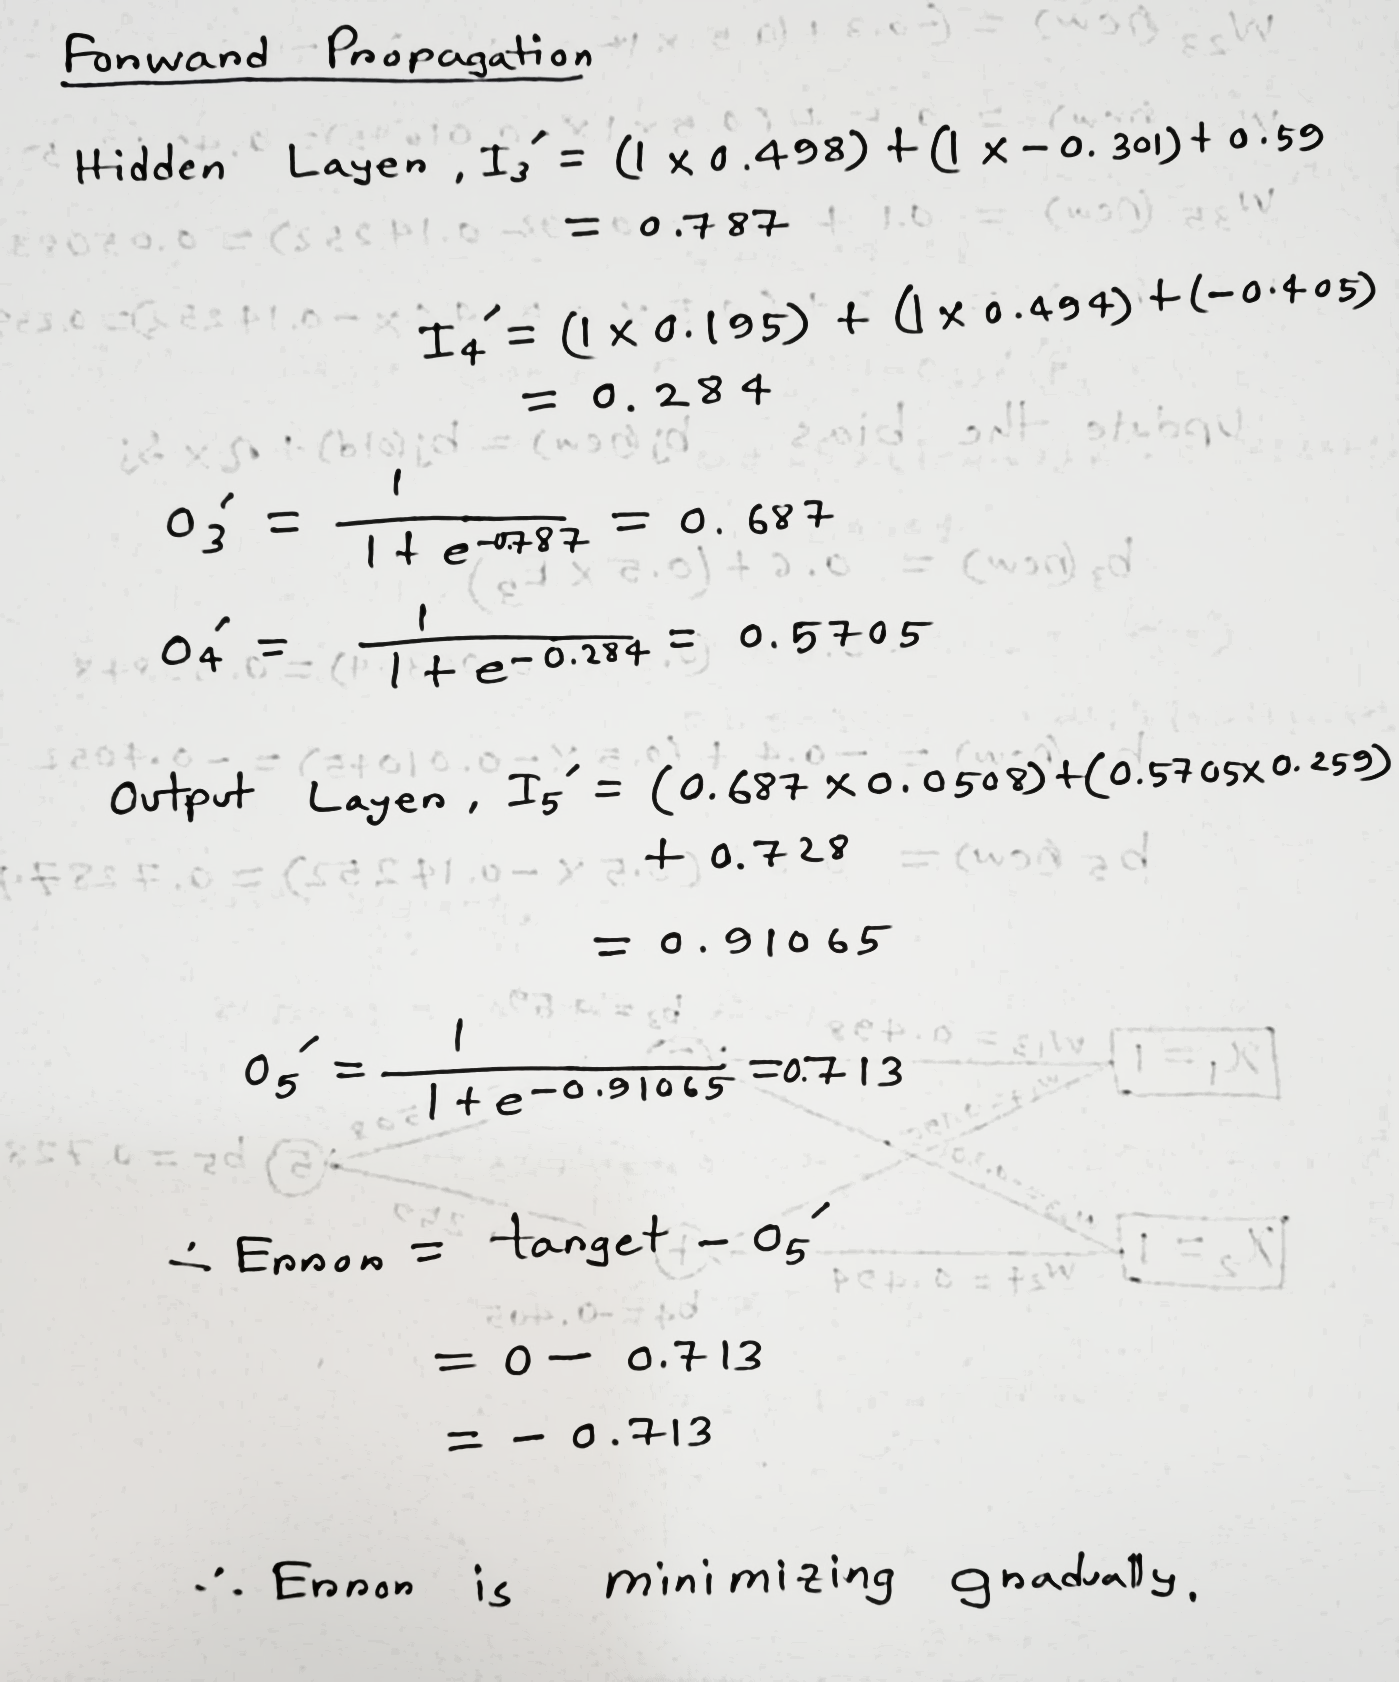 Forward Propagation
Hidden Layer, I₃′ = (1 × 0.498) + (1 × -0.301) + 0.59
= 0.787
I₄′ = (1 × 0.195) + (1 × 0.494) + (-0.405)
= 0.284
O₃′ = 1 / (1 + e^-0.787) = 0.687
O₄′ = 1 / (1 + e^-0.284) = 0.5705
Output Layer, I₅′ = (0.687 × 0.0508) + (0.5705 × 0.259)
+ 0.728
= 0.91065
O₅′ = 1 / (1 + e^-0.91065) = 0.713
∴ Error = target - O₅′
= 0 - 0.713
= - 0.713
∴ Error is minimizing gradually.